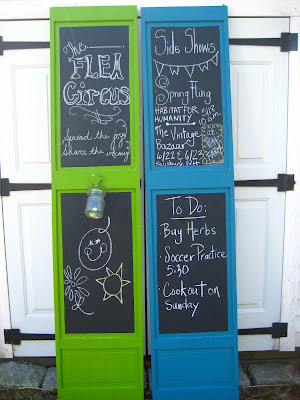 The
FLEA
Circus
Spread the joy!
Share the
Side Shows
Spring Fling
HABITAT FOR
HUMANITY
5/18
10 a.m.
The Vintage
Bazaar
6/22 & 6/23
Salisbury, MA
To Do:
· Buy Herbs
· Soccer Practice
5:30
· Cookout on
Sunday